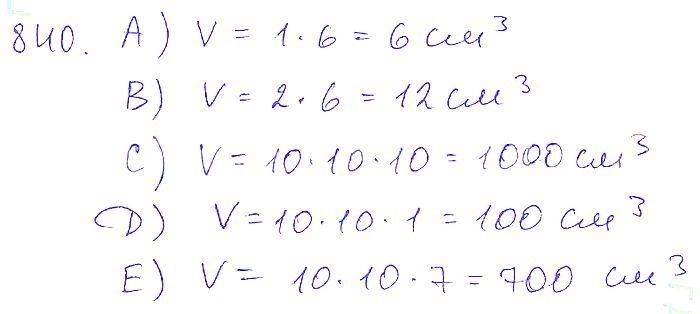 840. A) V = 1 · 6 = 6 см³
B) V = 2 · 6 = 12 см³
C) V = 10 · 10 · 10 = 1000 см³
D) V = 10 · 10 · 1 = 100 см³
E) V = 10 · 10 · 7 = 700 см³